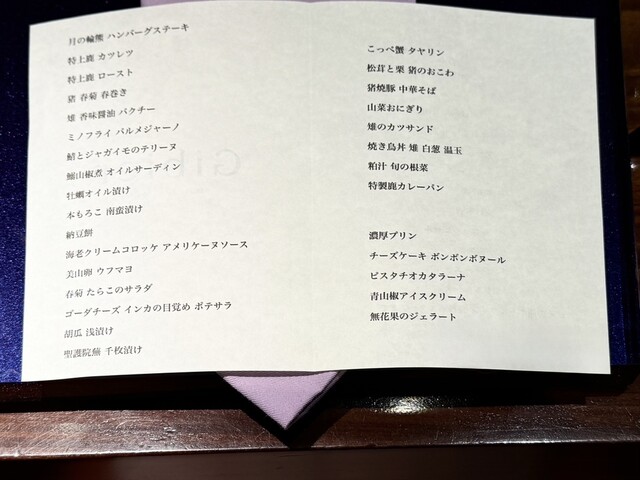 月の輪熊 ハンバーグステーキ
特上鹿 カツレツ
特上鹿 ロースト
猪 春菊 春巻き
雉 香味醤油 パクチー
ミノフライ パルメジャーノ
鯖とジャガイモのテリーヌ
鰯山椒煮 オイルサーディン
牡蠣オイル漬け
本もろこ 南蛮漬け
納豆餅
海老クリームコロッケ アメリケーヌソース
美山卵 ウフマヨ
春菊 たらこのサラダ
ゴーダチーズ インカの目覚め ポテサラ
胡瓜 浅漬け
聖護院蕪 千枚漬け
こっぺ蟹 タヤリン
松茸と栗 猪のおこわ
猪焼豚 中華そば
山菜おにぎり
雉のカツサンド
焼き鳥丼 雉 白葱 温玉
粕汁 旬の根菜
特製鹿カレーパン
濃厚プリン
チーズケーキ ボンボンボヌール
ピスタチオカタラーナ
青山椒アイスクリーム
無花果のジェラート